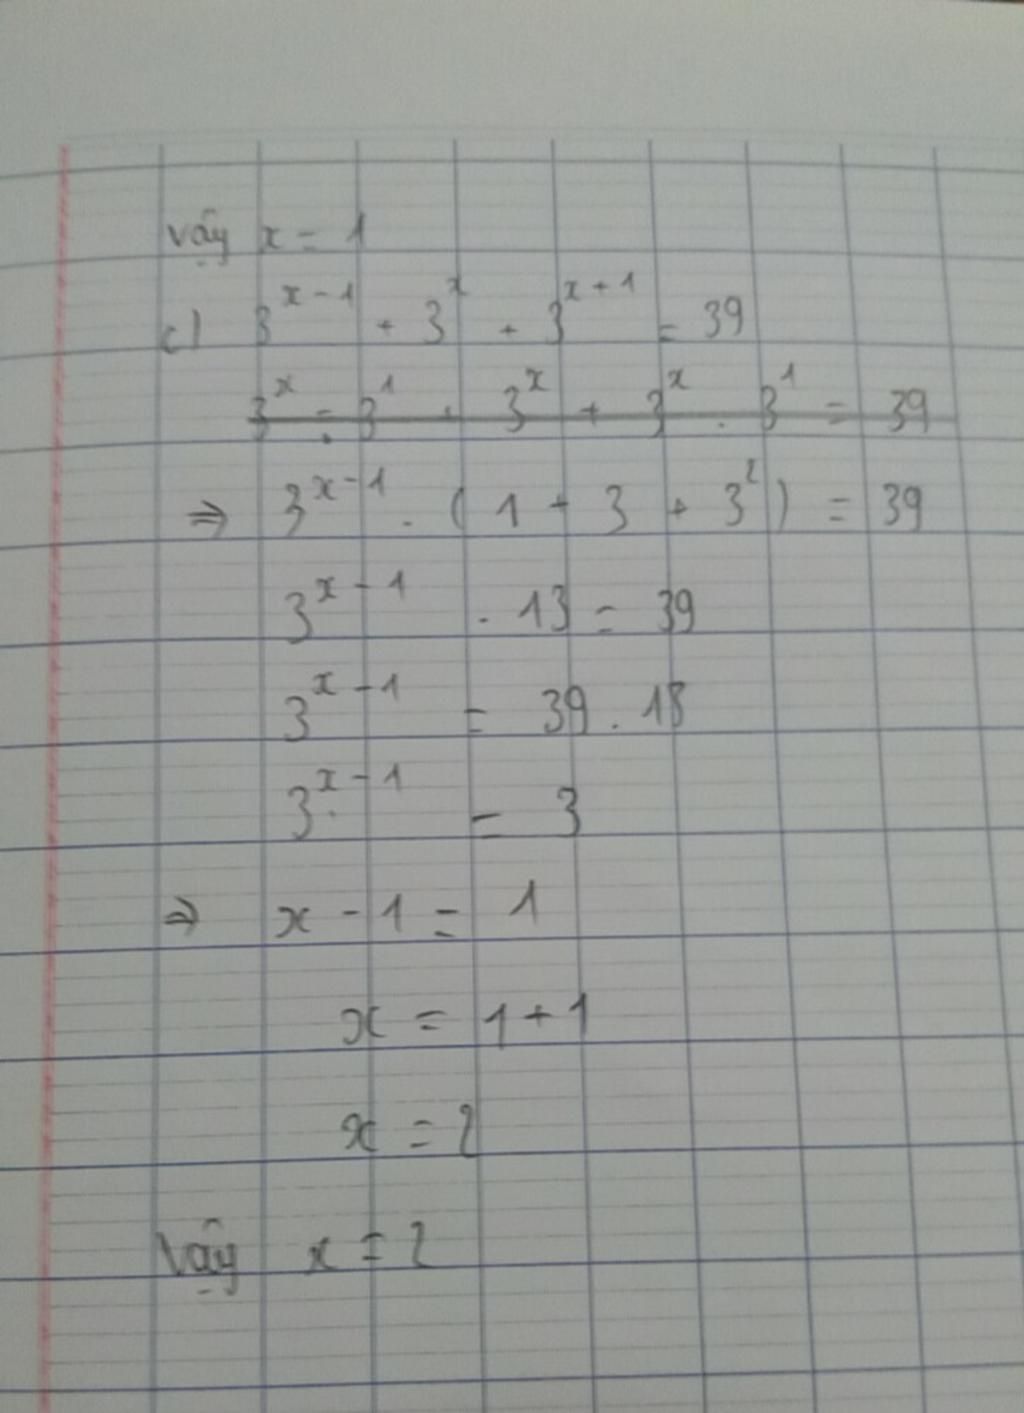 Vậy x = 1
c) 3^{x-1} + 3^x + 3^{x+1} = 39
3^x : 3^1 + 3^x + 3^x . 3^1 = 39
⇒ 3^{x-1} . ( 1 + 3 + 3^2 ) = 39
3^{x-1} . 13 = 39
3^{x-1} = 39 . 18
3^{x-1} = 3
⇒ x - 1 = 1
x = 1 + 1
x = 2
Vậy x = 2